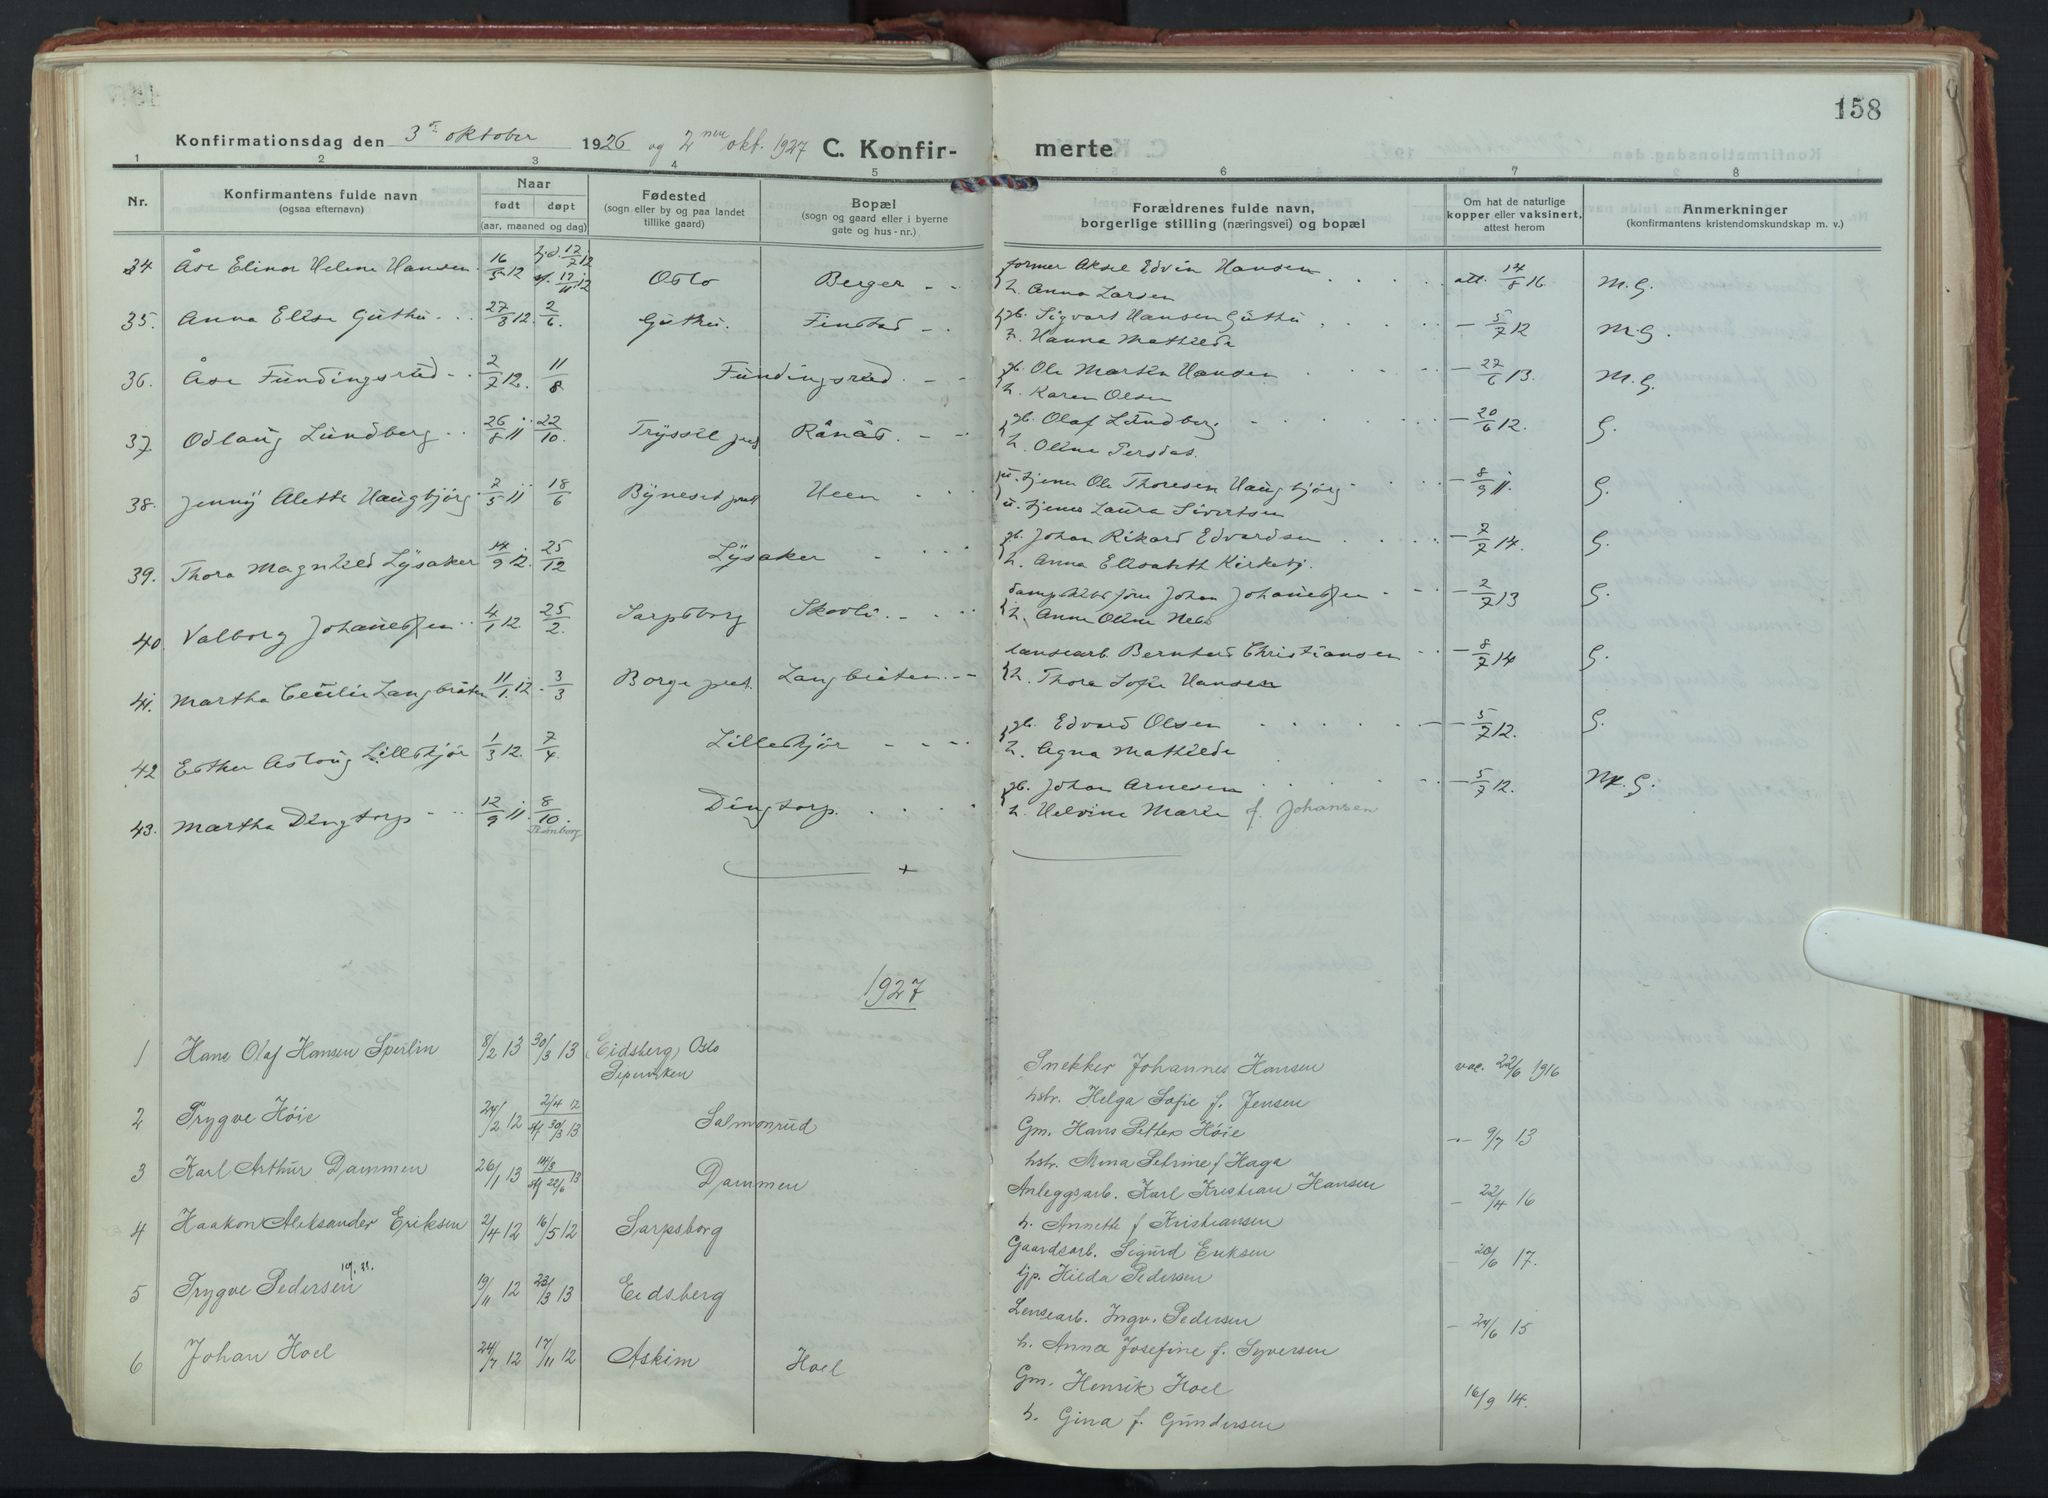 158
Konfirmationsdag den 3 oktober 1926 og 2 okt. 1927 C. Konfir- merte
1 2 3 4 5 6 7 8
Nr. Konfirmantens fulde navn (ogsaa efternavn) Naar født døpt (aar, maaned og dag) Fødested (sogn eller by og paa landet tillike gaard) Bopæl (sogn og gaard eller i byerne gate og hus-nr.) Forældrenes fulde navn, borgerlige stilling (næringsvei) og bopæl Om hat de naturlige kopper eller vaksinert, attest herom Anmerkninger (konfirmantens kristendomskundskap m. v.)
34 Åse Elinor Helene Hansen 16/5 12 hjd. 17/7 12 Oslo Berger former Aksel Edvin Hansen att. 14/8 16 M.G.
st. 17/11 12 h. Anna Larsen
35. Anna Elise Guthu 27/3 12. 2/6. Guthu. Finstad gb. Sigvart Hansen Guthu 5/7 12 M.G.
h. Hanna Mathilde
36. Åse Fundingsrud 2/7 12. 11/8 Fundingsrud gb. Ole Martin Hansen 27/6 13. M.G.
h. Karen Olsen
37. Odlaug Lundberg 26/8 11 22/10. Trysil prest Rånås gb. Olaf Lundberg 20/6 12. G.
h. Oline Persdat.
38. Jenny Alette Haugbjørg 7/5 11 18/6 Byneset prest Heen u. tjener Ole Thoresen Haugbjørg 8/9 11. G.
u. tjener Laura Sivertsen
39. Thora Magnhild Lysaker 14/9 12. 25/12 Lysaker gb. Johan Rikard Edvardsen 7/7 14. G.
h. Anna Elisabeth Kirkeby.
40. Valborg Johannesen 4/1 12. 25/2. Sarpsborg Skovli Johan Johannesen 2/7 13 G.
h. Anne Oline
41. Martha Cecilie Langbråten 11/1 12. 3/3 Borge prest. Langbråten lænsearb. Bernhard Christiansen 8/7 14 G.
h. Thora Sofie Hansen
42 Esther Aslaug Lilleskjør 1/3 12. 7/4 Lilleskjør gb. Edvard Olsen 5/7 12. G.
h. Agna Mathilde
43. Martha Dingtorp 12/9 11. 8/10. Dingtorp. gb. Johan Arnesen 5/7 12. M.G.
h. Helvine Marie f. Johansen
1927
1 Hans Olaf Hansen Sperlin 8/2 13 30/3 13 (Eidsberg) Oslo Snekker Johannes Hansen vac. 22/6 1916
Piperviken hstr. Helga Sofie f. Jensen
2 Trygve Høie 24/2 12 2/4 12 Salmonrud Gm. Hans Petter Høie 9/7 13
stf 30/3 13 hstr. Mina Petrine f Haga
3 Karl Arthur Dammen 26/1 13 14/3 Dammen Anleggsarb. Karl Kristian Hansen 22/4 16
stf 22/6 13 h. Annette f Kristiansen
4 Haakon Aleksander Eriksen 2/4 12 16/5 12 Sarpsborg Gaardsarb. Sigurd Eriksen 20/6 17.
tjp. Hilda Pedersen
5 Trygve Pedersen 19/11 12 23/3 13 Eidsberg Lensearb. Ingv. Pedersen 24/6 15
h. Anna Josefine f. Syversen
6 Johan Hoel 24/7 12 17/11 12 Askim Hoel Gm. Henrik Hoel 16/9 14.
h. Gina f. Gundersen